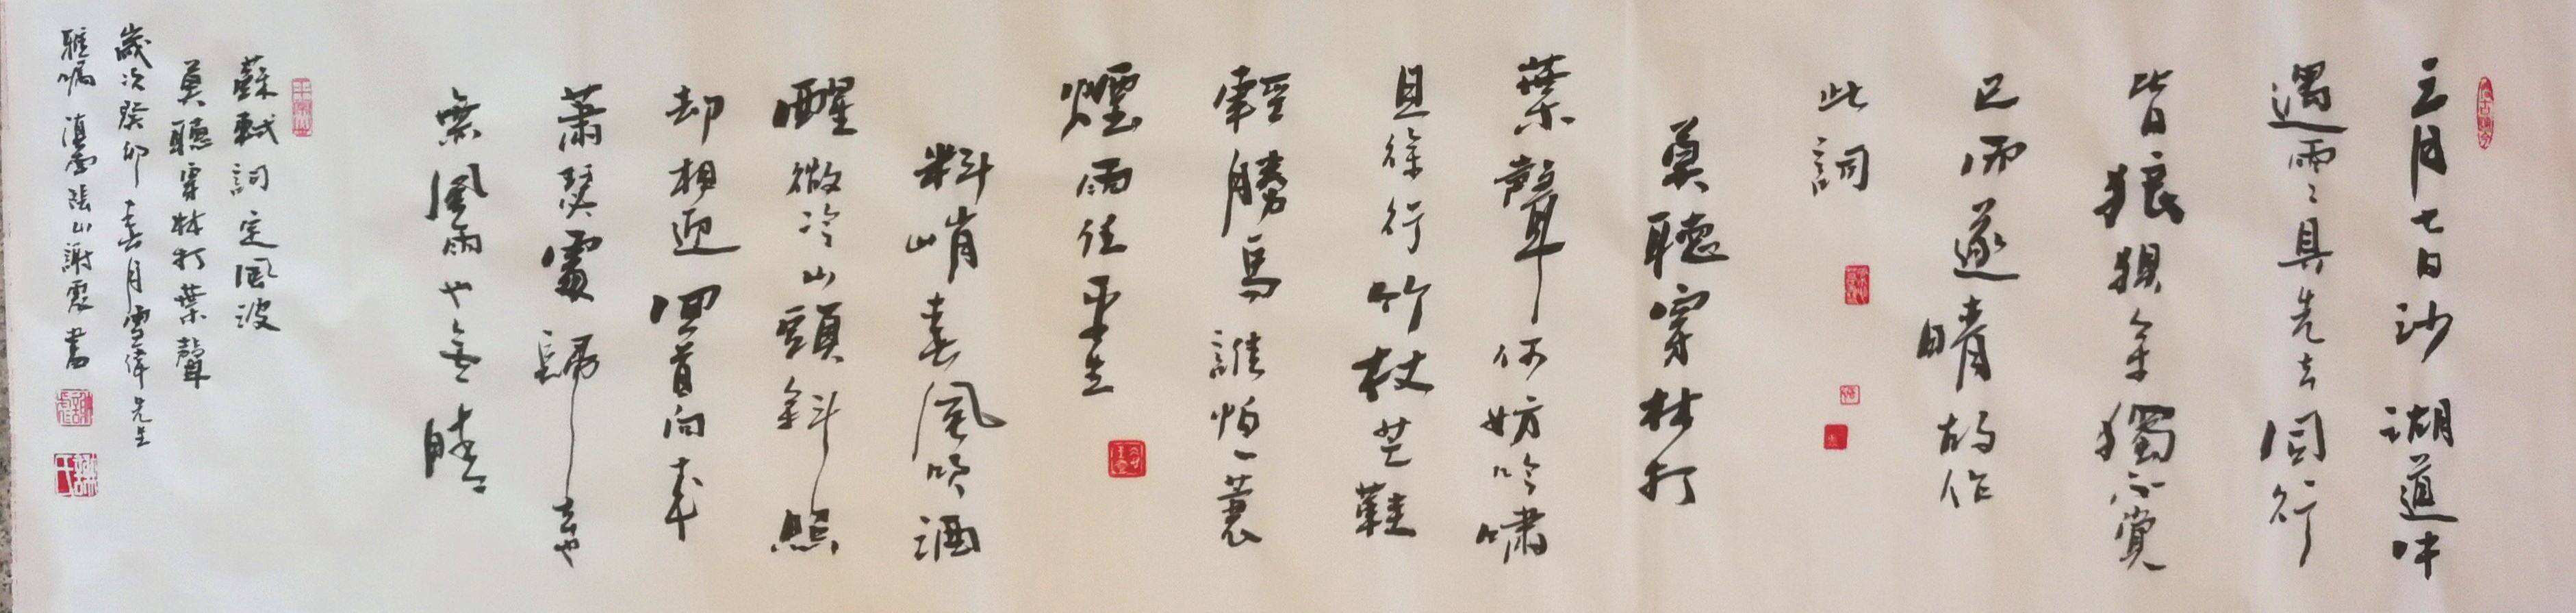 三月七日沙湖道中
遇雨雨具先去同行
皆狼狽余獨不覺
已而遂晴故作
此詞
莫聽穿林打
葉聲何妨吟嘯
且徐行竹杖芒鞋
輕勝馬誰怕一蓑
煙雨任平生
料峭春風吹酒
醒微冷山頭斜照
却相迎回首向來
蕭瑟處歸去也
無風雨也無晴
蘇軾詞定風波
莫聽穿林打葉聲
歲次癸卯春月雪偉先生
雅囑滇雲陸山謝震書